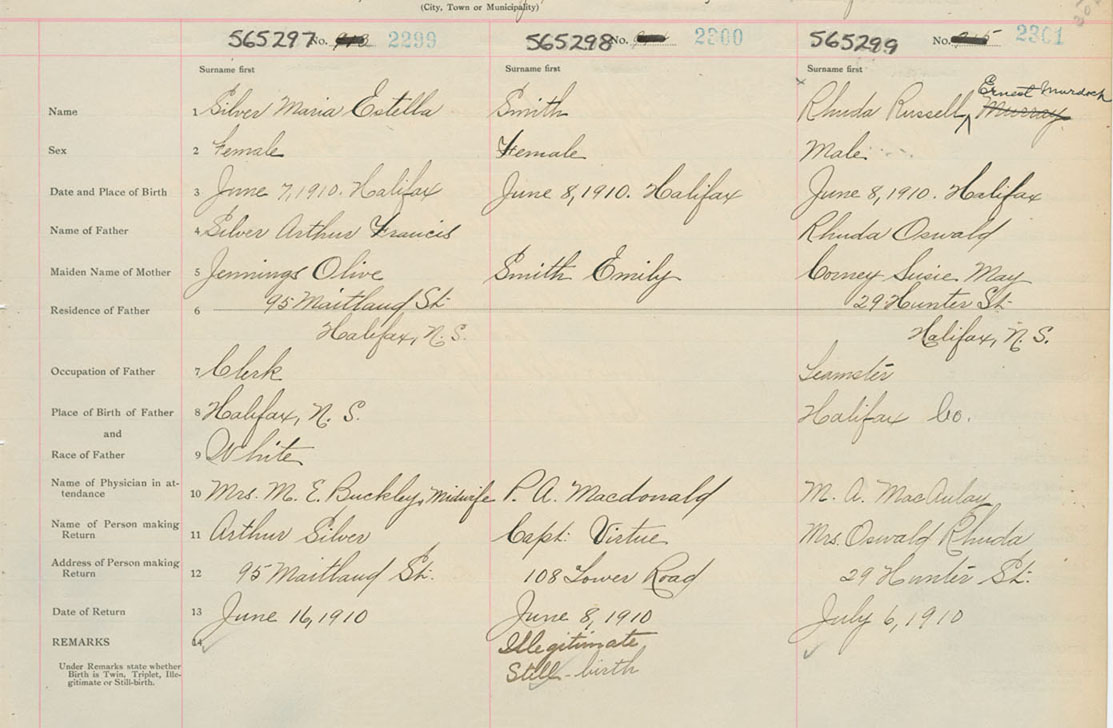 (City, Town or Municipality)
565297 No. 2299 565298 No. 2300 565299 No. 2301
Surname first Surname first Surname first
Ernest Murdoch
Name 1 Silver Maria Estella Smith Rhuda Russell, Murray
Sex 2 Female Female Male
Date and Place of Birth 3 June 7, 1910. Halifax June 8, 1910. Halifax June 8, 1910. Halifax
Name of Father 4 Silver Arthur Francis Rhuda Oswald
Maiden Name of Mother 5 Jennings Olive Smith Emily Corney Susie May
Residence of Father 6 95 Maitland St. 29 Hunter St.
Halifax, N. S. Halifax, N. S.
Occupation of Father 7 Clerk Teamster
Place of Birth of Father 8 Halifax, N. S. Halifax Co.
and
Race of Father 9 White
Name of Physician in at-
tendance 10 Mrs. M. E. Buckley, Midwife P. A. Macdonald M. A. MacAulay
Name of Person making
Return 11 Arthur Silver Capt. Virtue Mrs. Oswald Rhuda
Address of Person making
Return 12 95 Maitland St. 108 Lower Road 29 Hunter St.
Date of Return 13 June 16, 1910 June 8, 1910 July 6, 1910
REMARKS 14 Illegitimate
Under Remarks state whether
Birth is Twin, Triplet, Ille-
gitimate or Still-birth.
Still-birth